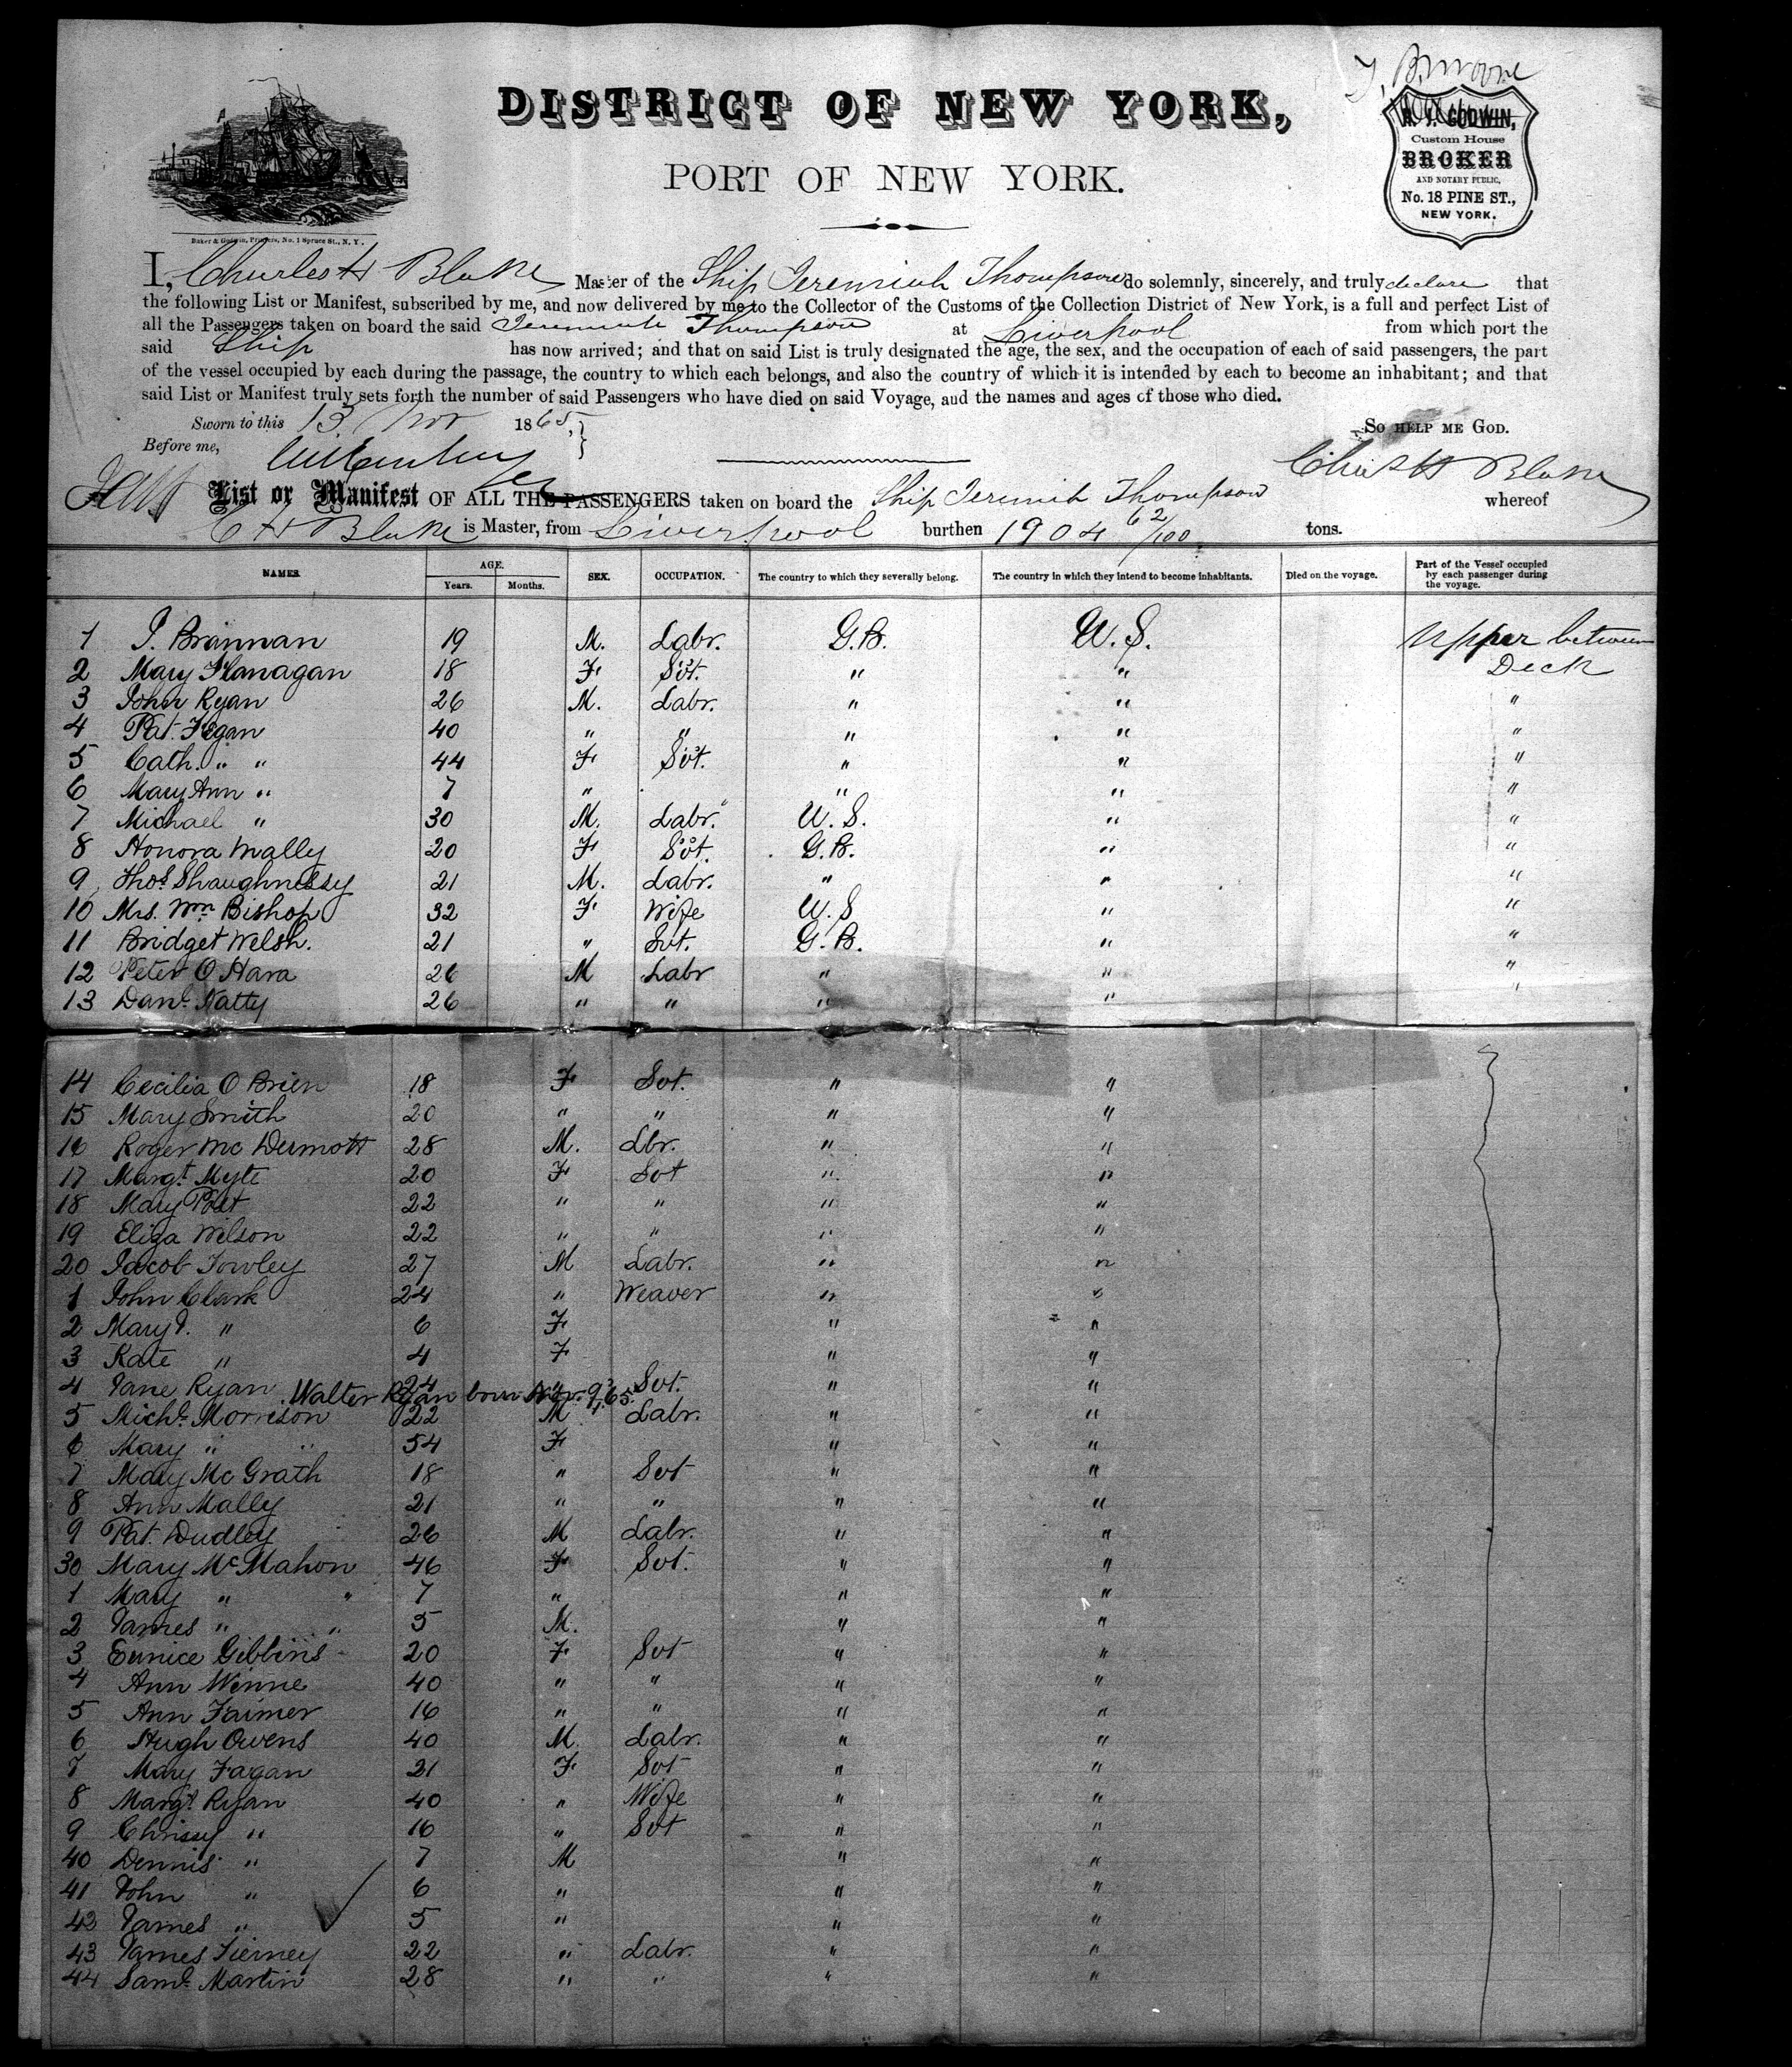 DISTRICT OF NEW YORK,
PORT OF NEW YORK.
GODWIN,
Custom House
BROKER
AND NOTARY PUBLIC,
No. 18 PINE ST.,
NEW YORK.
Baker & Godwin, Printers, No. 1 Spruce St., N. Y.
I, Charles H Blake Master of the Ship Jeremiah Thompson do solemnly, sincerely, and truly declare that
the following List or Manifest, subscribed by me, and now delivered by me to the Collector of the Customs of the Collection District of New York, is a full and perfect List of
all the Passengers taken on board the said Jeremiah Thompson at Liverpool from which port the
said Ship has now arrived; and that on said List is truly designated the age, the sex, and the occupation of each of said passengers, the part
of the vessel occupied by each during the passage, the country to which each belongs, and also the country of which it is intended by each to become an inhabitant; and that
said List or Manifest truly sets forth the number of said Passengers who have died on said Voyage, and the names and ages of those who died.
Sworn to this 13 Nov 1865, So help me God.
Before me,
Chas H Blake
List or Manifest OF ALL THE PASSENGERS taken on board the Ship Jeremih Thompson whereof
C H Blake is Master, from Liverpool burthen 1904 62/100 tons.
NAMES. AGE. Years. Months. SEX. OCCUPATION. The country to which they severally belong. The country in which they intend to become inhabitants. Died on the voyage. Part of the Vessel occupied by each passenger during the voyage.
1 J. Brannan 19 M. Labr. G.B. U.S. Upper between
2 Mary Flanagan 18 F Svt. " " Deck
3 John Ryan 26 M. Labr. " " "
4 Pat. Fegan 40 " " " " "
5 Cath. " " 44 F Svt. " " "
6 Mary Ann " 7 " " " "
7 Michael " 30 M. Labr. U.S. " "
8 Honora Mally 20 F Svt. G.B. " "
9 Thos. Shaughnessy 21 M. Labr. " " "
10 Mrs. Wm Bishop 32 F Wife U.S " "
11 Bridget Welsh. 21 " Svt. G.B. " "
12 Peter O Hara 26 M Labr " " "
13 Danl. Natty 26 " " " " "
14 Cecilia O Brien 18 F Svt. " "
15 Mary Smith 20 " " " "
16 Roger Mc Dermott 28 M. Lbr. " "
17 Margt. Myte 20 F Svt " "
18 Mary Platt 22 " " " "
19 Eliza Wilson 22 " " " "
20 Jacob Towley 27 M Labr. " "
1 John Clark 24 " Weaver " "
2 Mary J. " 6 F " "
3 Kate " 4 F " "
4 Jane Ryan 24 " Svt. " "
Walter Ryan born Nov. 9, 65.
5 Michl. Morrison 22 M Labr. " "
6 Mary " " 54 F " "
7 Mary Mc Grath 18 " Svt " "
8 Ann Mally 21 " " " "
9 Pat. Dudley 26 M Labr. " "
30 Mary McMahon 46 F Svt. " "
1 Mary " " 7 " " "
2 James " " 5 M. " "
3 Eunice Gibbins 20 F Svt " "
4 Ann Winne 40 " " " "
5 Ann Faimer 16 " " " "
6 Hugh Owens 40 M. Labr. " "
7 Mary Fagan 21 F Svt " "
8 Margt. Ryan 40 " Wife " "
9 Chrissy " 16 " Svt " "
40 Dennis " 7 M " "
41 John " 6 " " "
42 James " 5 " " "
43 James Tierney 22 " Labr. " "
44 Saml. Martin 28 " " " "